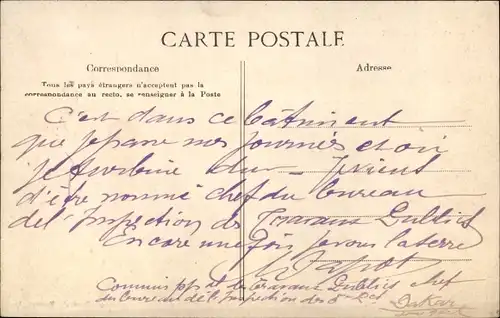 CARTE POSTALE
Correspondance
Adresse
Tous les pays étrangers n'acceptent pas la
correspondance au recto, se renseigner à la Poste
C'est dans ce bâtiment
que je passe mes journées et où
je turbine dur - je viens
d'être nommé chef du bureau
de l'Inspection des Travaux Publics
Encore une fois je vous la serre
Commis des Travaux Publics chef
du bureau de l'Inspection des
Dakar